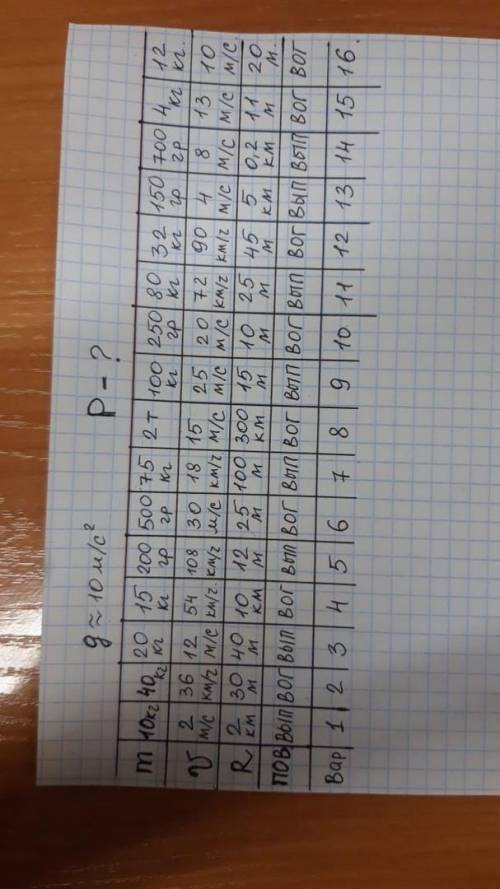 g ≈ 10 м/с² P - ?
m 10кг 40кг 20 кг 15 кг 200 гр 500 гр 75 кг 2т 100 кг 250 гр 80 кг 32 кг 150 гр 700 гр 4 кг 12 кг.
v 2 м/с 36 км/ч 12 м/с 54 км/ч. 108 км/ч 30 м/с 18 км/ч 15 м/с 25 м/с 20 м/с 72 км/ч 90 км/ч 4 м/с 8 м/с 13 м/с 10 м/с.
R 2 км 30 м 40 м 10 км 12 м 25 м 100 м 300 км 15 м 10 м 25 м 45 м 5 км 0,2 км 11 м 20 м.
ПОВ ВЫП ВОГ ВЫП ВОГ ВЫП ВОГ ВЫП ВОГ ВЫП ВОГ ВЫП ВОГ ВЫП ВЫП ВОГ ВОГ
Вар 1 2 3 4 5 6 7 8 9 10 11 12 13 14 15 16.